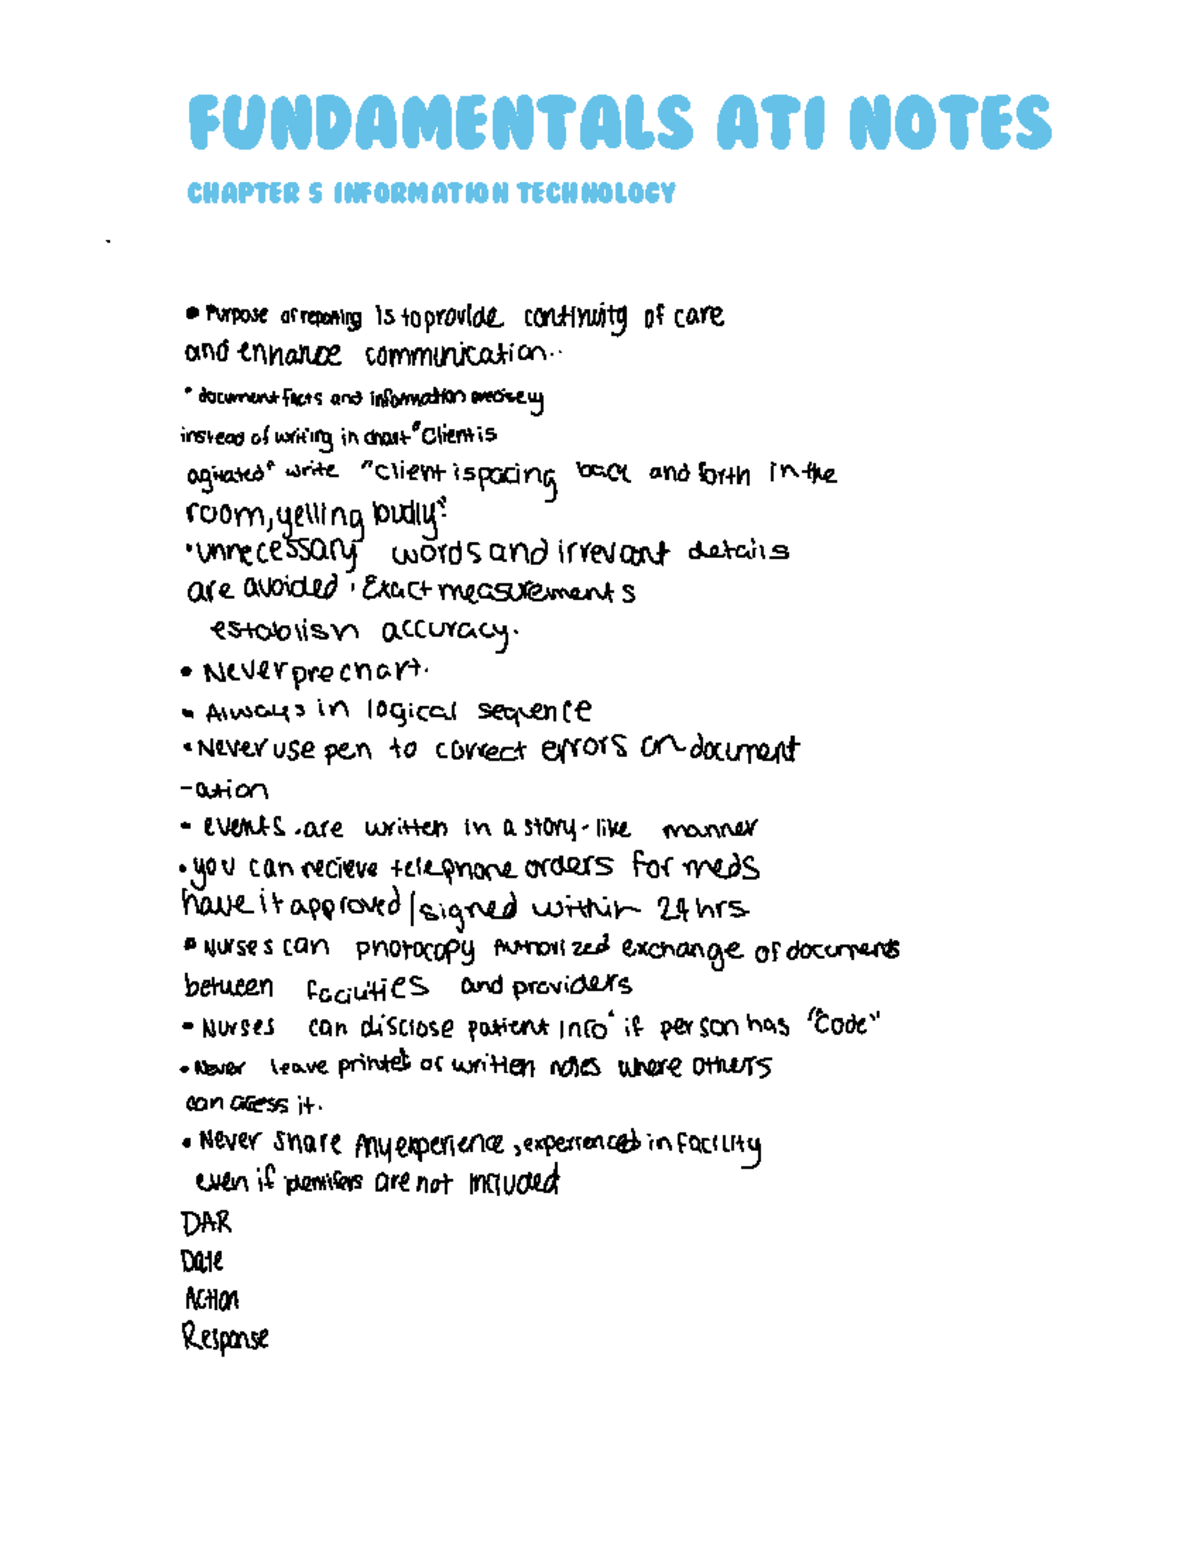 FUNDAMENTALS ATI NOTES
CHAPTER 5 INFORMATION TECHNOLOGY
• Purpose of reporting is to provide continuity of care
and enhance communication..
• document facts and information precisely
instead of writing in chart "Client is
agitated" write "client is pacing back and forth in the
room, yelling loudly."
• unnecessary words and irrevant details
are avoided. Exact measurements
establish accuracy.
• Never prechart.
• Always in logical sequence
• Never use pen to correct errors on document
-ation
- events are written in a story-like manner
• you can recieve telephone orders for meds
have it approved/signed within 24 hrs
• Nurses can photocopy authorized exchange of documents
between facilities and providers
- Nurses can disclose patient info if person has "Code"
• Never leave printed or written notes where others
can acess it.
• Never share any experience, experienced in facility
even if identifiers are not included
DAR
Date
Action
Response